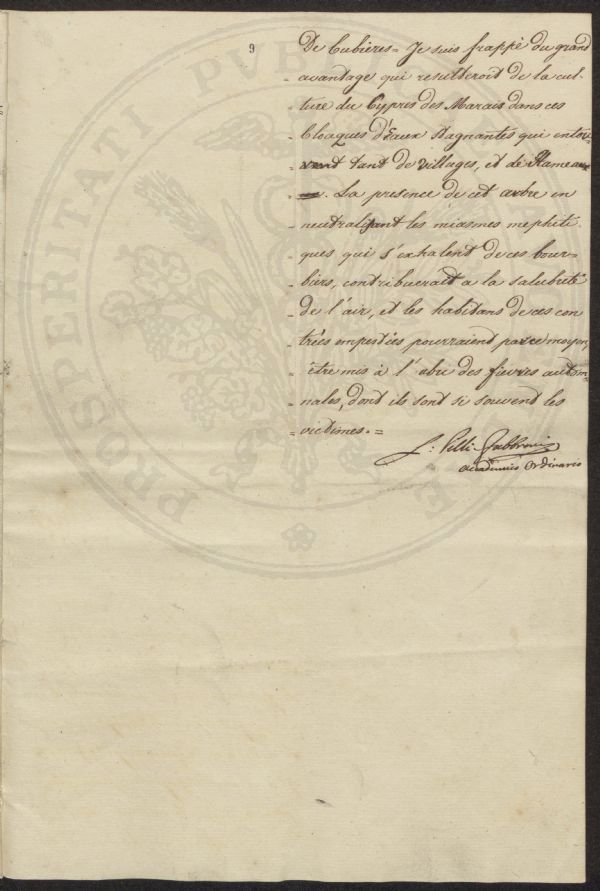 9
De Cubieres = Je suis frappé du grand
„ avantage qui resulteroit de la cul-
„ ture du Cypres des Marais dans ces
„ Cloaques d'Eaux stagnantes qui entou-
„ rent tant de villages, et de Hameaux
„ . La presence de cet arbre en
„ neutralisant les miasmes mephiti-
„ ques qui s'exhalent de ces bour-
„ biers, contribuerait a la salubrité
„ de l'air, et les habitans de ces con
„ trées empestées pourraient par ce moyen,
„ être mis à l'abri des fievres autom-
„ nales, dont ils sont si souvent les
„ victimes. =
Pelli-Fabbroni
Accademico Ordinario
PROSPERITATI PUBLICAE